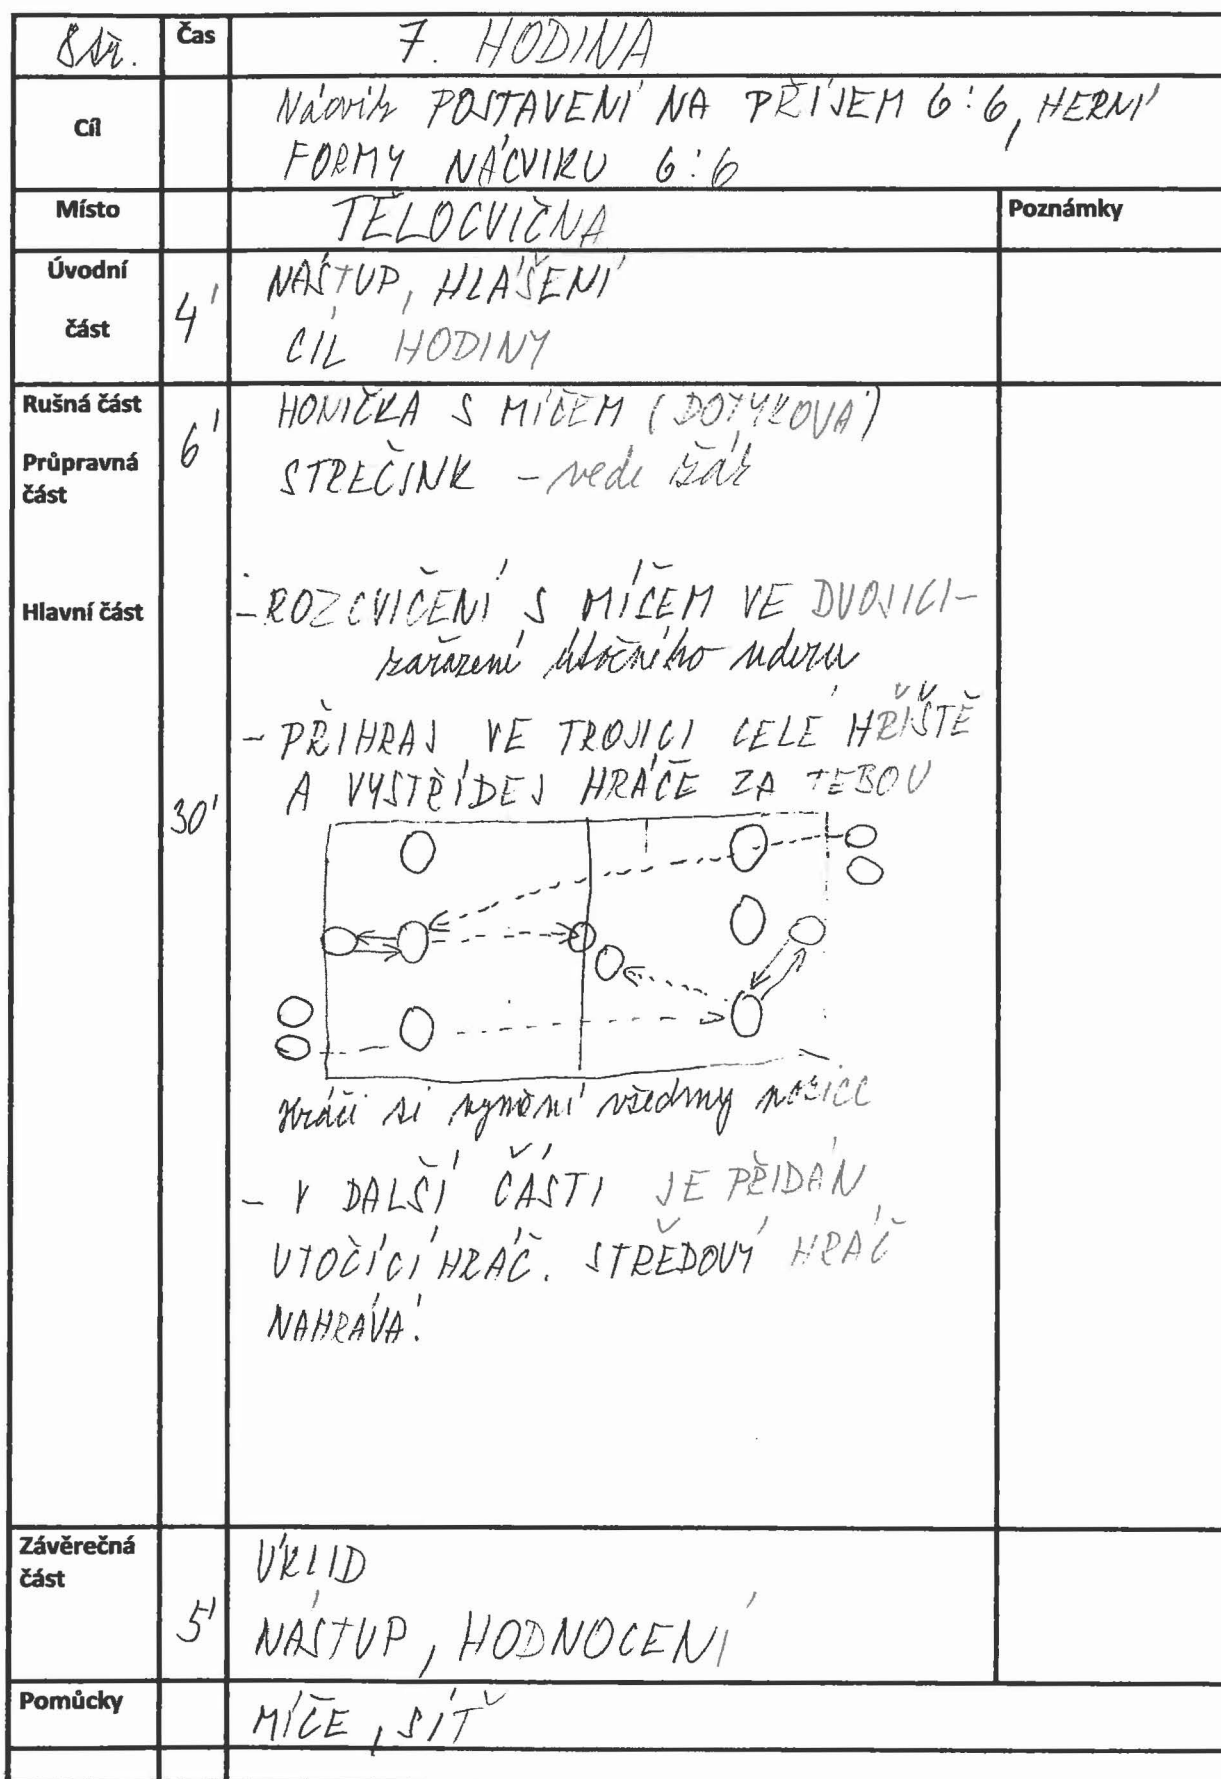 8 tř. Čas 7. HODINA
Cíl
Nácvik POSTAVENÍ NA PŘÍJEM 6:6, HERNÍ
FORMY NÁCVIKU 6:6
Místo TĚLOCVIČNA Poznámky
Úvodní
část
4'
NÁSTUP, HLÁŠENÍ
CÍL HODINY
Rušná část
Průpravná
část
6'
HONIČKA S MÍČEM (DOTYKOVÁ)
STREČINK - vede žák
Hlavní část
30'
- ROZCVIČENÍ S MÍČEM VE DVOJICI -
zařazení útočného úderu
- PŘIHRAJ VE TROJICI CELÉ HŘIŠTĚ
A VYSTŘÍDEJ HRÁČE ZA TEBOU
Hráči si vymění všechny pozice
- V DALŠÍ ČÁSTI JE PŘIDÁN
ÚTOČÍCÍ HRÁČ. STŘEDOVÝ HRÁČ
NAHRÁVÁ.
Závěrečná
část
5'
ÚKLID
NÁSTUP, HODNOCENÍ
Pomůcky MÍČE, SÍŤ